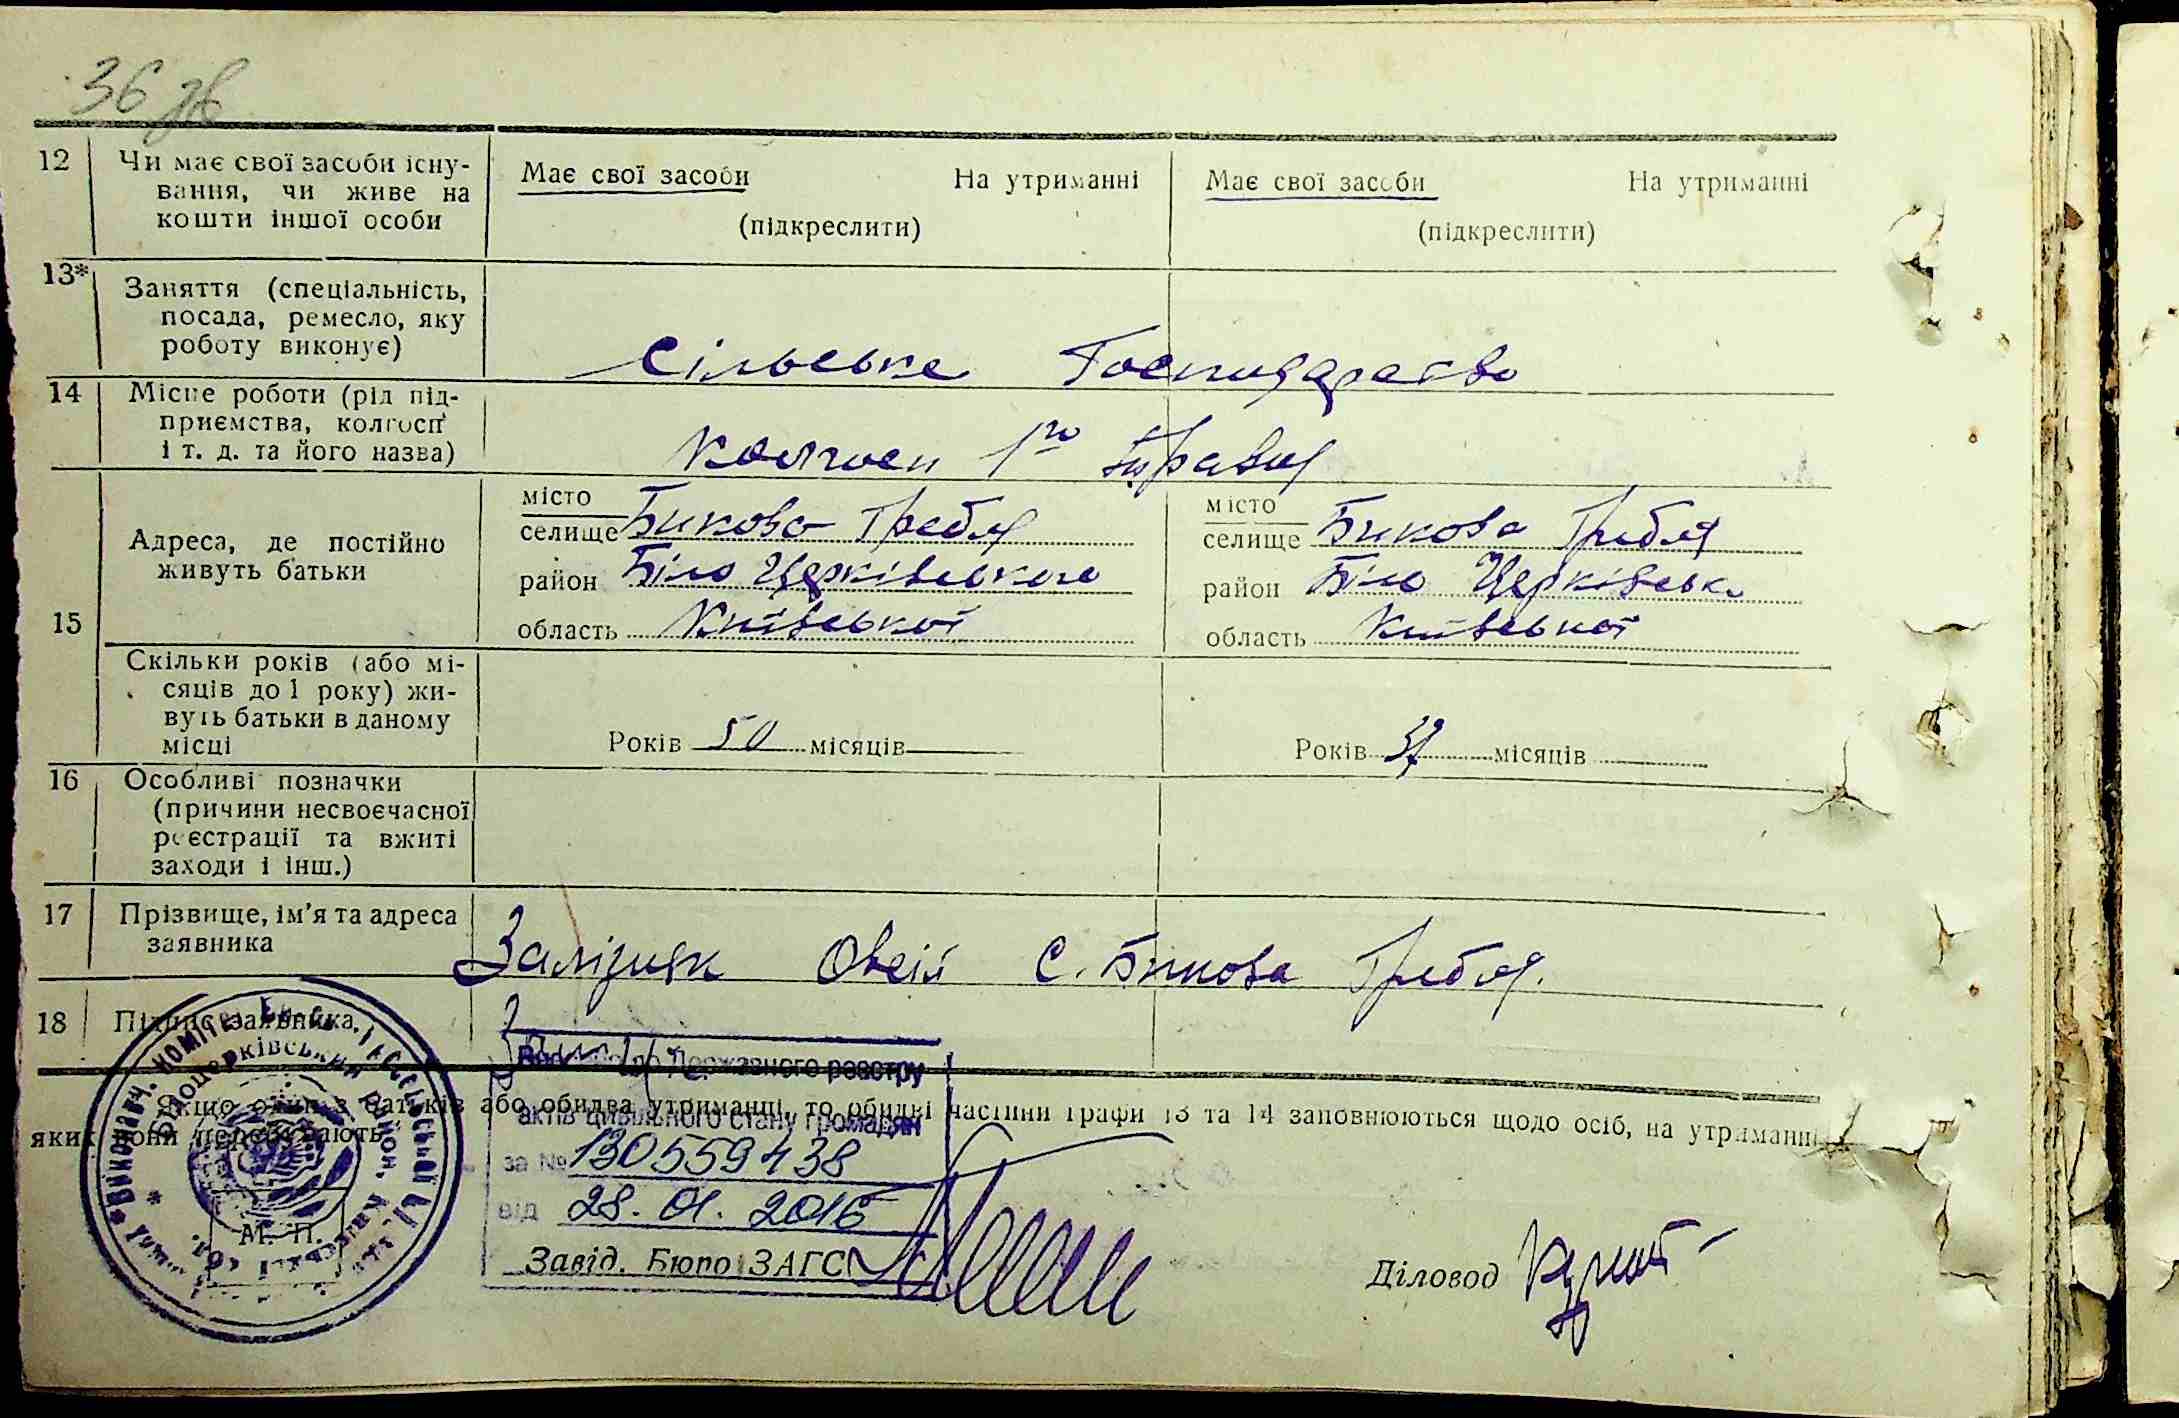 36 зв
12 Чи має свої засоби існу-
вання, чи живе на
кошти іншої особи
Має свої засоби На утриманні
(підкреслити)
Має свої засоби На утриманні
(підкреслити)
13* Заняття (спеціальність,
посада, ремесло, яку
роботу виконує)
Сільське Господарство
14 Місце роботи (рід під-
приємства, колгосп
і т. д. та його назва)
Колгосп 1го Травня
15
Адреса, де постійно
живуть батьки
місто
селище Бикова Гребля
район Біло Церківського
область Київської
місто
селище Бикова Гребля
район Біло Церківсько
область Київської
Скільки років (або мі-
сяців до 1 року) жи-
вуть батьки в даному
місці
Років 50 місяців
Років 37 місяців
16 Особливі позначки
(причини несвоєчасної
реєстрації та вжиті
заходи і інш.)
17 Прізвище, ім'я та адреса
заявника
Залізняк Овсій С. Бикова Гребля.
18 Підпис заявника
Державного реєстру
актів цивільного стану громадян
за № 130559438
від 28.01.2016
Якщо один з батьків або обидва утриманці, то обидві частини графи 13 та 14 заповнюються щодо осіб, на утриманні
яких вони перебувають.
М. П.
Завід. Бюро ЗАГС
Діловод